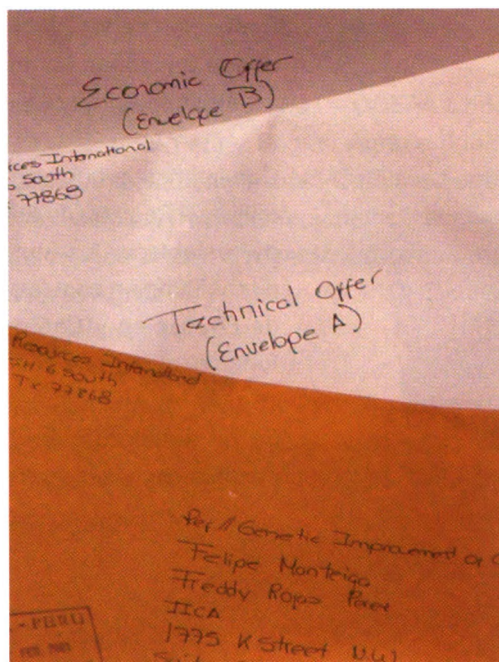 Economic Offer
(Envelope B)
rces International
South
77868
Technical Offer
(Envelope A)
Resources International
6 South
Tx 77868
Ref // Genetic Improvement of
Felipe Manteiga
Freddy Rojas
IICA
1775 K Street N.W
- PERU